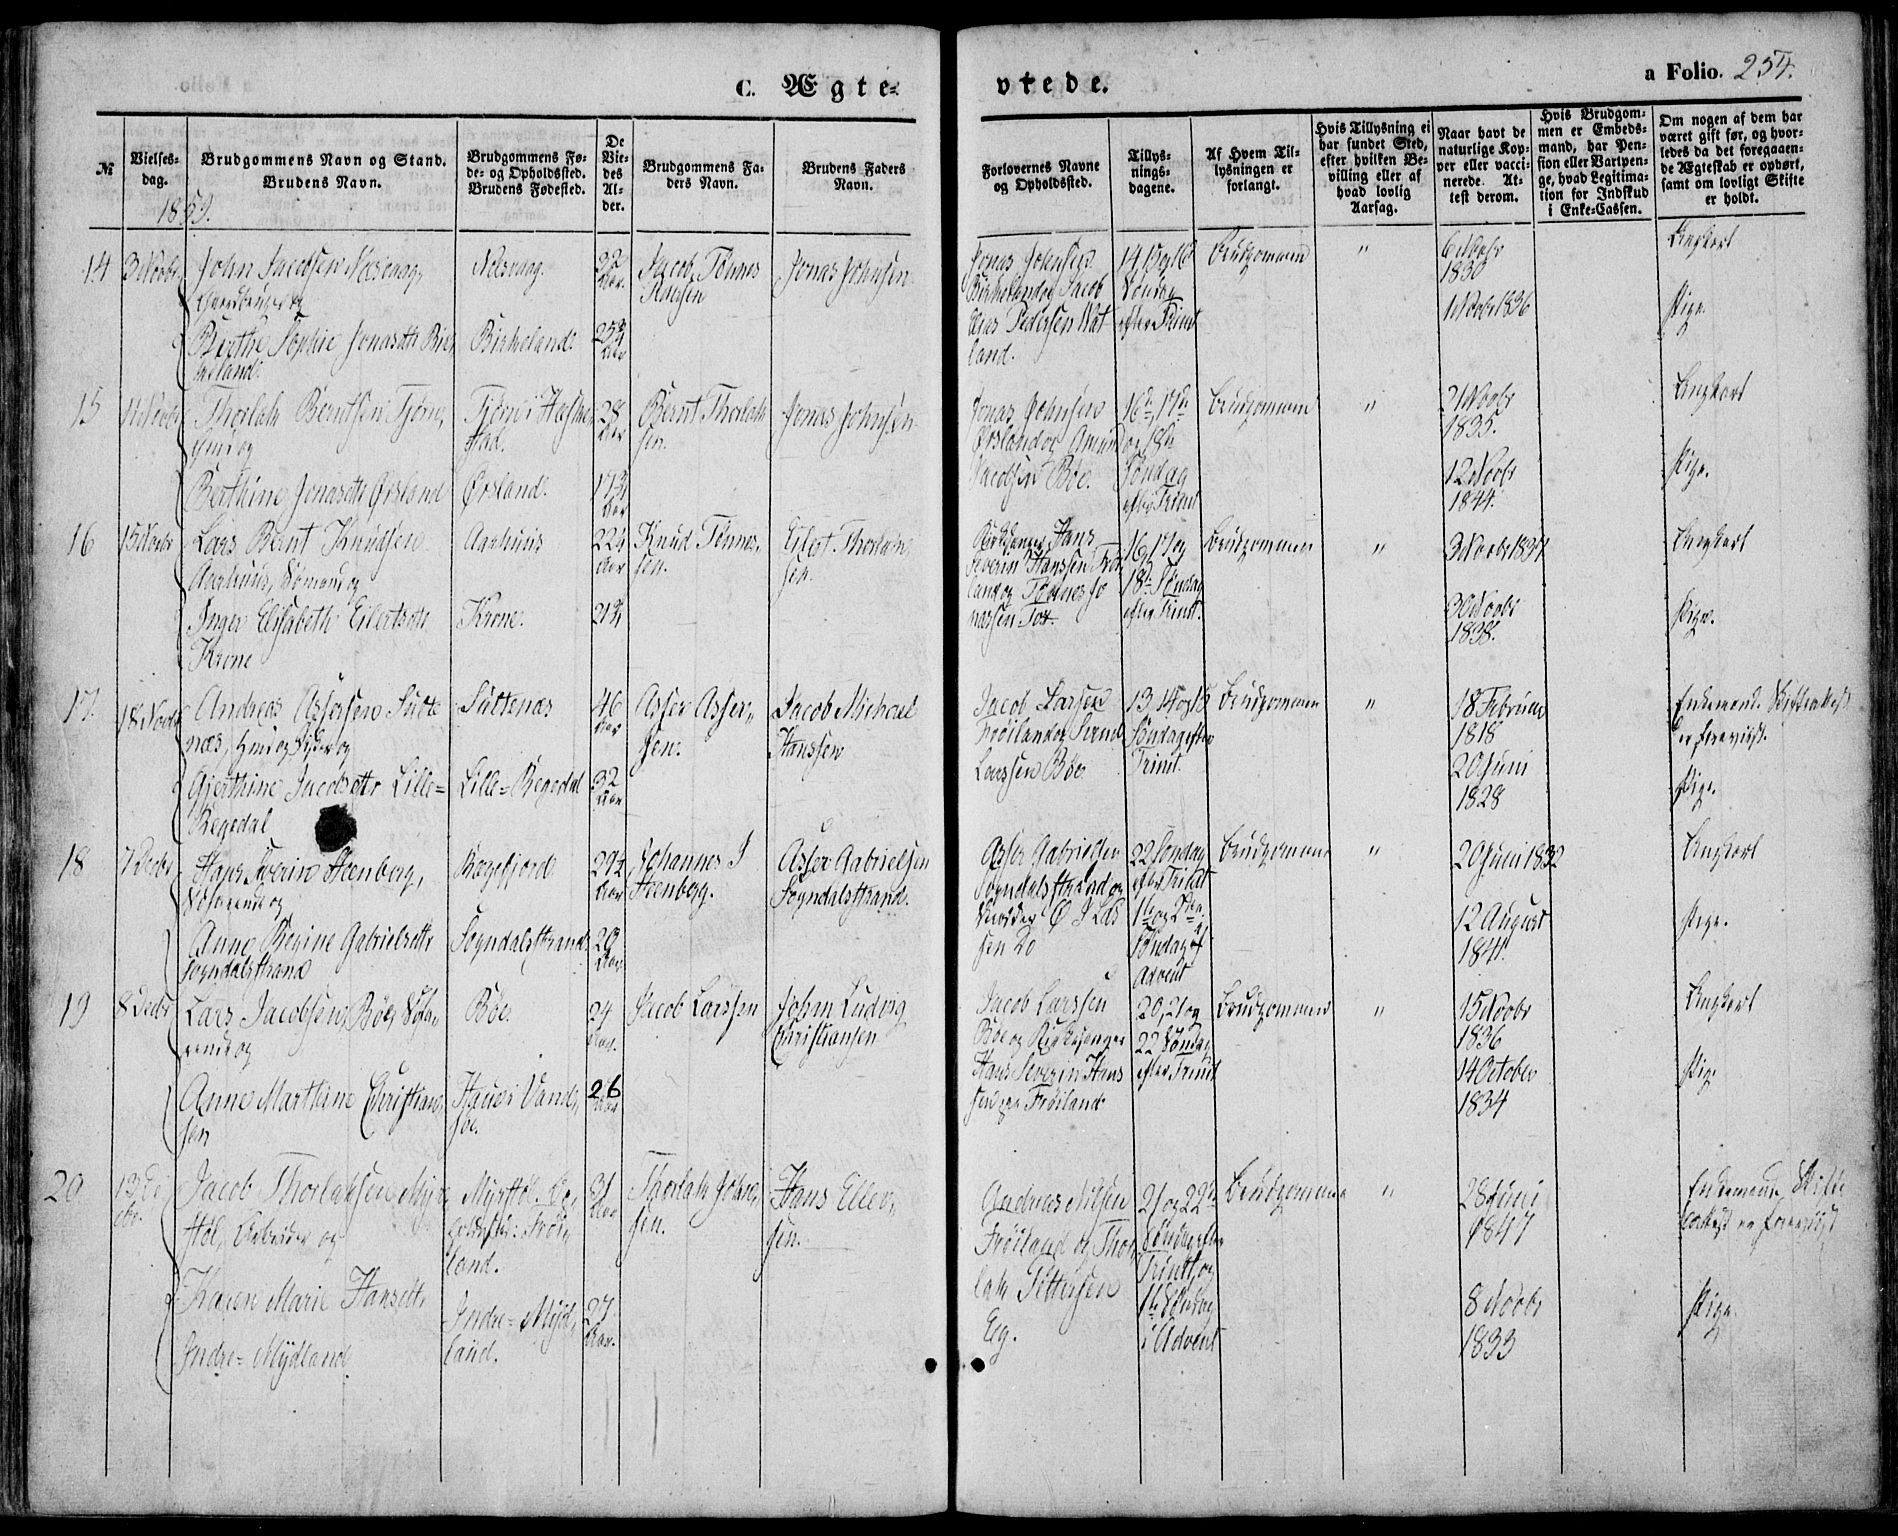 C. Ægte-
viede.
a Folio. 254.
№
Vielses-
dag.
Brudgommens Navn og Stand.
Brudens Navn.
Brudgommens Fø-
de- og Opholdssted.
Brudens Fødested.
De
Vie-
des
Al-
der.
Brudgommens Fa-
ders Navn.
Brudens Faders
Navn.
Forlovernes Navne
og Opholdssted.
Tillys-
nings-
dagene.
Af Hvem Til-
lysningen er
forlangt.
Hvis Tillysning ei
har fundet Sted,
efter hvilken Be-
villing eller af
hvad lovlig
Aarsag.
Naar havt de
naturlige Kop-
per eller vacci-
nerede. At-
test derom.
Hvis Brudgom-
men er Embeds-
mand, har Pen-
sion eller Vartpen-
ge, hvad Legitima-
tion for Indskud
i Enke-Cassen.
Om nogen af dem har
været gift før, og hvor-
ledes da det foregaaen-
de Ægteskab er ophørt,
samt om lovligt Skifte
er holdt.
1859.
14 3 Novbr John Jacobsen Næsvaag,
og
Berthe Sophie Jonasdtr Bir
keland.
Næsvaag.
Birkeland.
22 Aar.
25¾ Aar
Jacob Tønnes
Jonas Johnsen
Jonas Johnsen
Birkeland og Jacob
Pedersen Wat
land.
14 15 og 16
Søndag
efter Trinit
Brudgommen
"
6 Novbr
1830
1 Novbr 1836
Ungkarl
Pige.
15 Novbr Thorlak Berntsen Tjørn,
og
Berthine Jonasdtr Ørsland
Tjørn i Hæske
stad.
Ørsland.
28 Aar
17¾ Aar
Bernt Thorlak
sen.
Jonas Johnsen
Jonas Johnsen
Ørsland og Amund
Jacobsen Bøe.
16de 17de
og 18de
Søndag
efter Trinit
Brudgommen
"
2 Novbr
1835.
12 Novbr
1844.
Ungkarl
Pige.
16 15 Novbr Lars Bernt Knudsen
Aarhuus, Sømand og
Inger Elisabeth Eilertsdtr
Krone
Aarhuus
Krone.
22¼ Aar
21¾
Knud Tønnes
sen.
Eilert Thorlak
sen.
Kirkesanger Hans
Severin Hanssen Frøi
land og Tønnes Jo
nassen Tox.
16, 17 og
18de Søndag
efter Trinit.
Brudgommen
"
3 Novbr 1837
30 Novbr
1838.
Ungkarl
Pige.
17. 18 Novbr Andreas Assersen Sutte
næs, og
Gjerthine Jacobsdtr Lille=
Regedal
Suttenæs
Lille=Regedal
46 Aar
32 Aar
Asser Asser-
sen.
Jacob Michael
Hanssen
Jacob Larsen
Frøiland og
Larssen Bøe
13, 14 og 15
Søndag efter
Trinit.
Brudgommen
"
18 Februar
1818
20 Juni
1828
Enkemand. Skifteattest
er foreviist.
Pige.
18 7 Decbr Hans Severin Steenberg,
og
Anne Regine Gabrielsdtr
Sogndalsstrand
Rægefjord
Sogndalsstrand
29¼ Aar
20 Aar
Johannes I
Steenberg.
Asser Gabrielsen
Sogndalsstrand.
Asser Gabrielsen
Sogndalsstrand og
sen Do
22 Søndag
efter Trinit
1te og 2den
Søndag af
Advent
Brudgommen
"
20 Juni 1832
12 August
1841.
Ungkarl
Pige.
19 8 Decbr Lars Jacobsen Bøe,
og
Anne Marthine Christian,
sen
Bøe.
Hauei Vand,
søe.
24 Aar.
26 Aar
Jacob Larssen
John Ludvig
Christiansen
Jacob Larssen
Bøe og Kirkesanger
Hans Severin Hans
sen paa Frøiland
20, 21 og
22 Søndag
efter Trinit
Brudgommen
"
15 Novbr
1836
14 October
1834
Ungkarl
Pige
20 13 De
cbr. Jacob Thorlaksen Myrs
tøl, Arbeider og
Karen Marie Hansdtr
Indre=Mydland
Myrstøl. Op,
holdsst: Frøi,
land.
Indre=Myd,
land.
31 Aar
27 Aar.
Thorlak
sen.
Hans Ellev,
sen.
Andreas Nilsen
Frøiland og Thor,
lak Pettersen
Eeg.
21 og 22de
Søndag efter
Trinit, og
1te Søndag
i Advent
Brudgommen
"
28 Juni
1847
8 Novbr
1833
Enkemand, Skifte
attest er foreviist
Pige.